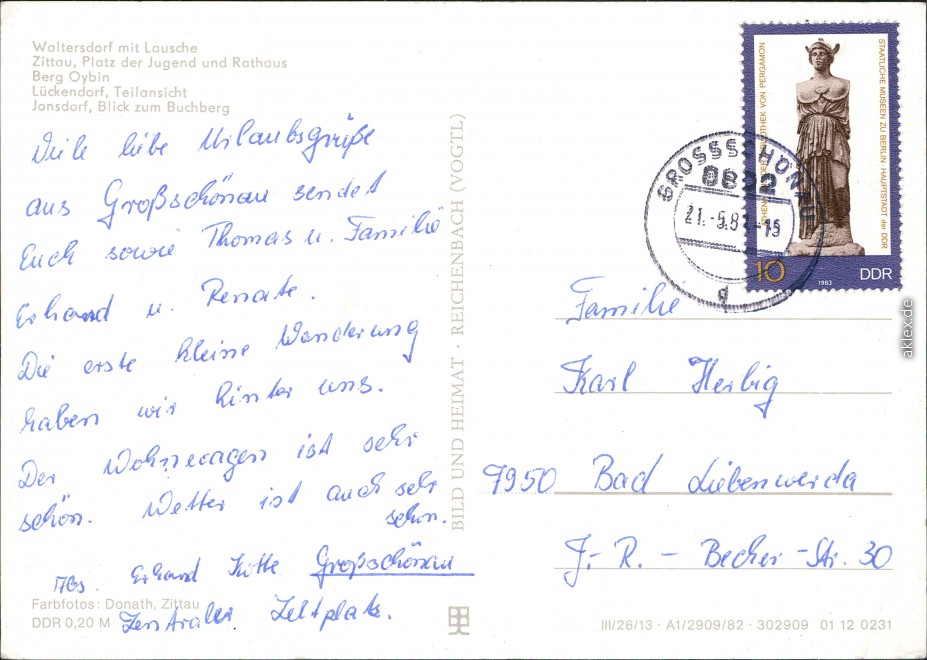 Waltersdorf mit Lausche
Zittau, Platz der Jugend und Rathaus
Berg Oybin
Lückendorf, Teilansicht
Jonsdorf, Blick zum Buchberg
Viele liebe Urlaubsgrüße
aus Großschönau sendet
Euch sowie Thomas u. Familie
Erhard u. Renate.
Die erste kleine Wanderung
haben wir hinter uns.
Der Wohnwagen ist sehr
schön. Wetter ist auch sehr
schön.
Abs. Erhard Großschönau
Zentraler Zeltplatz.
Farbfotos: Donath, Zittau
DDR 0,20 M
BILD UND HEIMAT · REICHENBACH (VOGTL)
STAATLICHE MUSEEN ZU BERLIN · HAUPTSTADT der DDR
VON PERGAMON
10 1983 DDR
GROSSSCHÖNAU
21.-5.8
d
Familie
Karl Herbig
7950 Bad Liebenwerda
J.-R.-Becher-Str. 30
III/26/13 · A1/2909/82 · 302909 01 12 0231
aklex.de